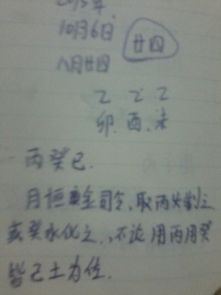 10月6日
廿四
八月廿四
乙 乙 乙
卯、酉、未
丙癸己.
金司令,取丙火制之
癸水化之、不论用丙用癸
皆己土为佐.